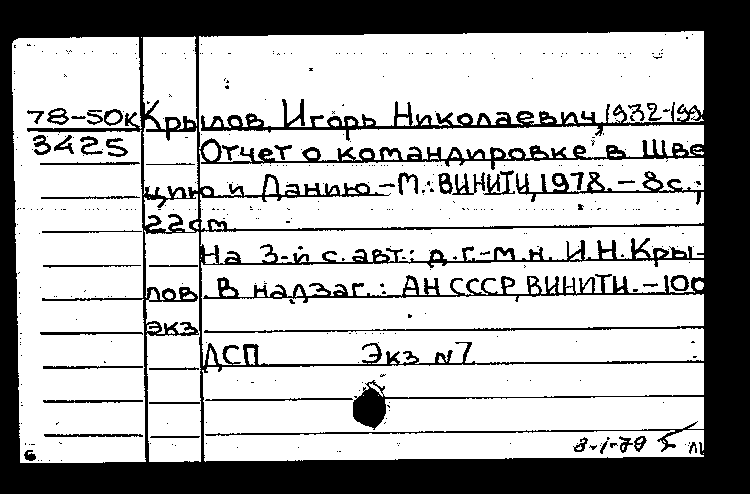 78-50к Крылов, Игорь Николаевич, 1932-199
3425 Отчет о командировке в Шве
цию и Данию.-М.: ВИНИТИ, 1978. - 8с.;
22cm
На 3-й с. авт.: д.г.-м.н. И.Н.Кры-
лов. В надзаг.: АН СССР, ВИНИТИ. - 100
экз
ДСП Экз №7
8-1-79
6